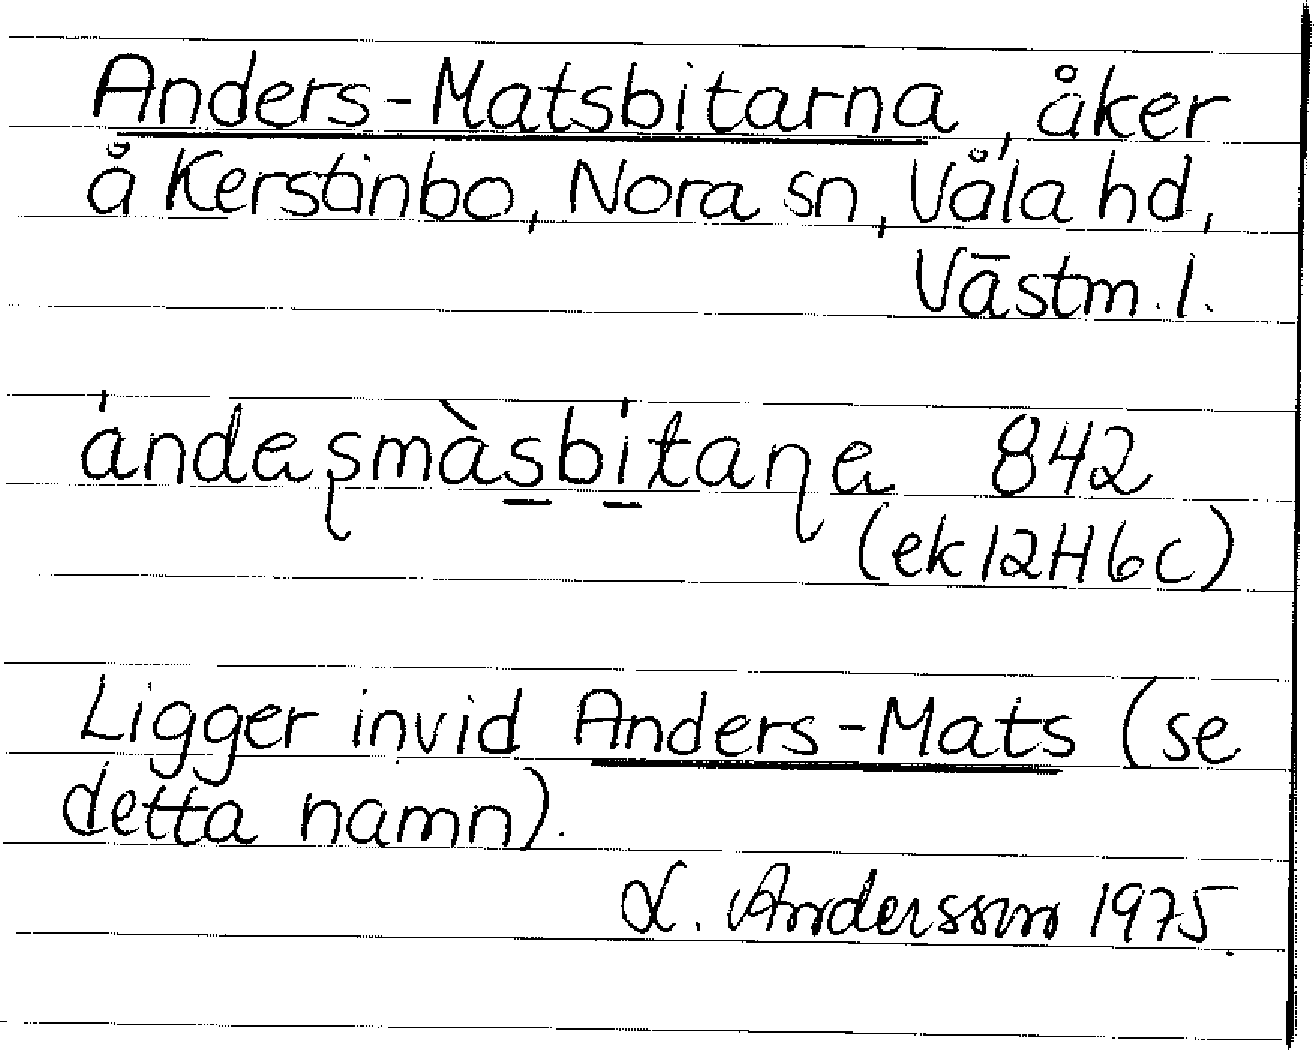 Anders-Matsbitarna, åker
å Kerstinbo, Nora sn, Våla hd,
Västm. l.
ándaʂmàsbítaɳa 842
(ek 12H6c)
Ligger invid Anders-Mats (se
detta namn).
L. Andersson 1975.